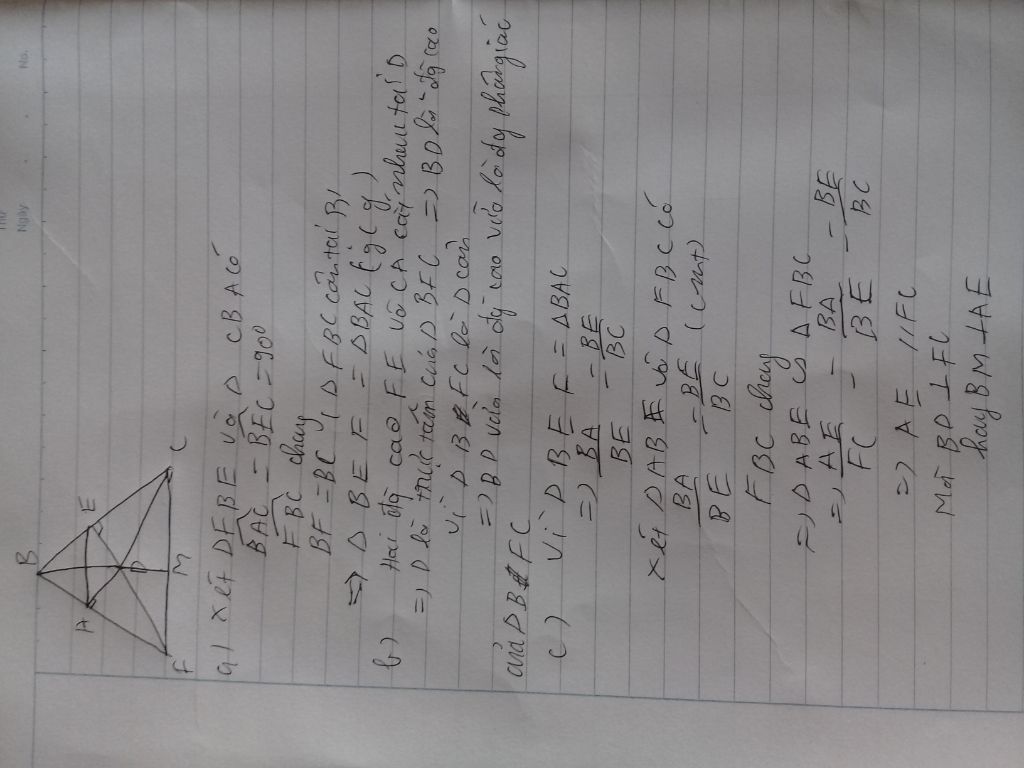 No.
Ngày
B
A
E
D
F
M
C
a) xét Δ FBE và Δ CBA có
BAC = BEC = 90°
FBC chung
BF = BC (Δ FBC cân tại B)
=> Δ BEF = Δ BAC (g c g)
b) Hai đg cao FE và CA cắt nhau tại D
=> D là trực tâm của Δ BFC => BD là đg cao
Vì Δ BFC là Δ cân
=> BD vừa là đg cao vừa là đg phân giác
của Δ B FC
c) Vì Δ BEF = Δ BAC
=> BA/BE = BE/BC
xét Δ ABE và Δ FBC có
BA/BE = BE/BC (cmt)
FBC chung
=> Δ ABE ∽ Δ FBC
=> AE/FC = BA/BE = BE/BC
=> AE // FC
Mà BD ⊥ FC
hay BM ⊥ AE